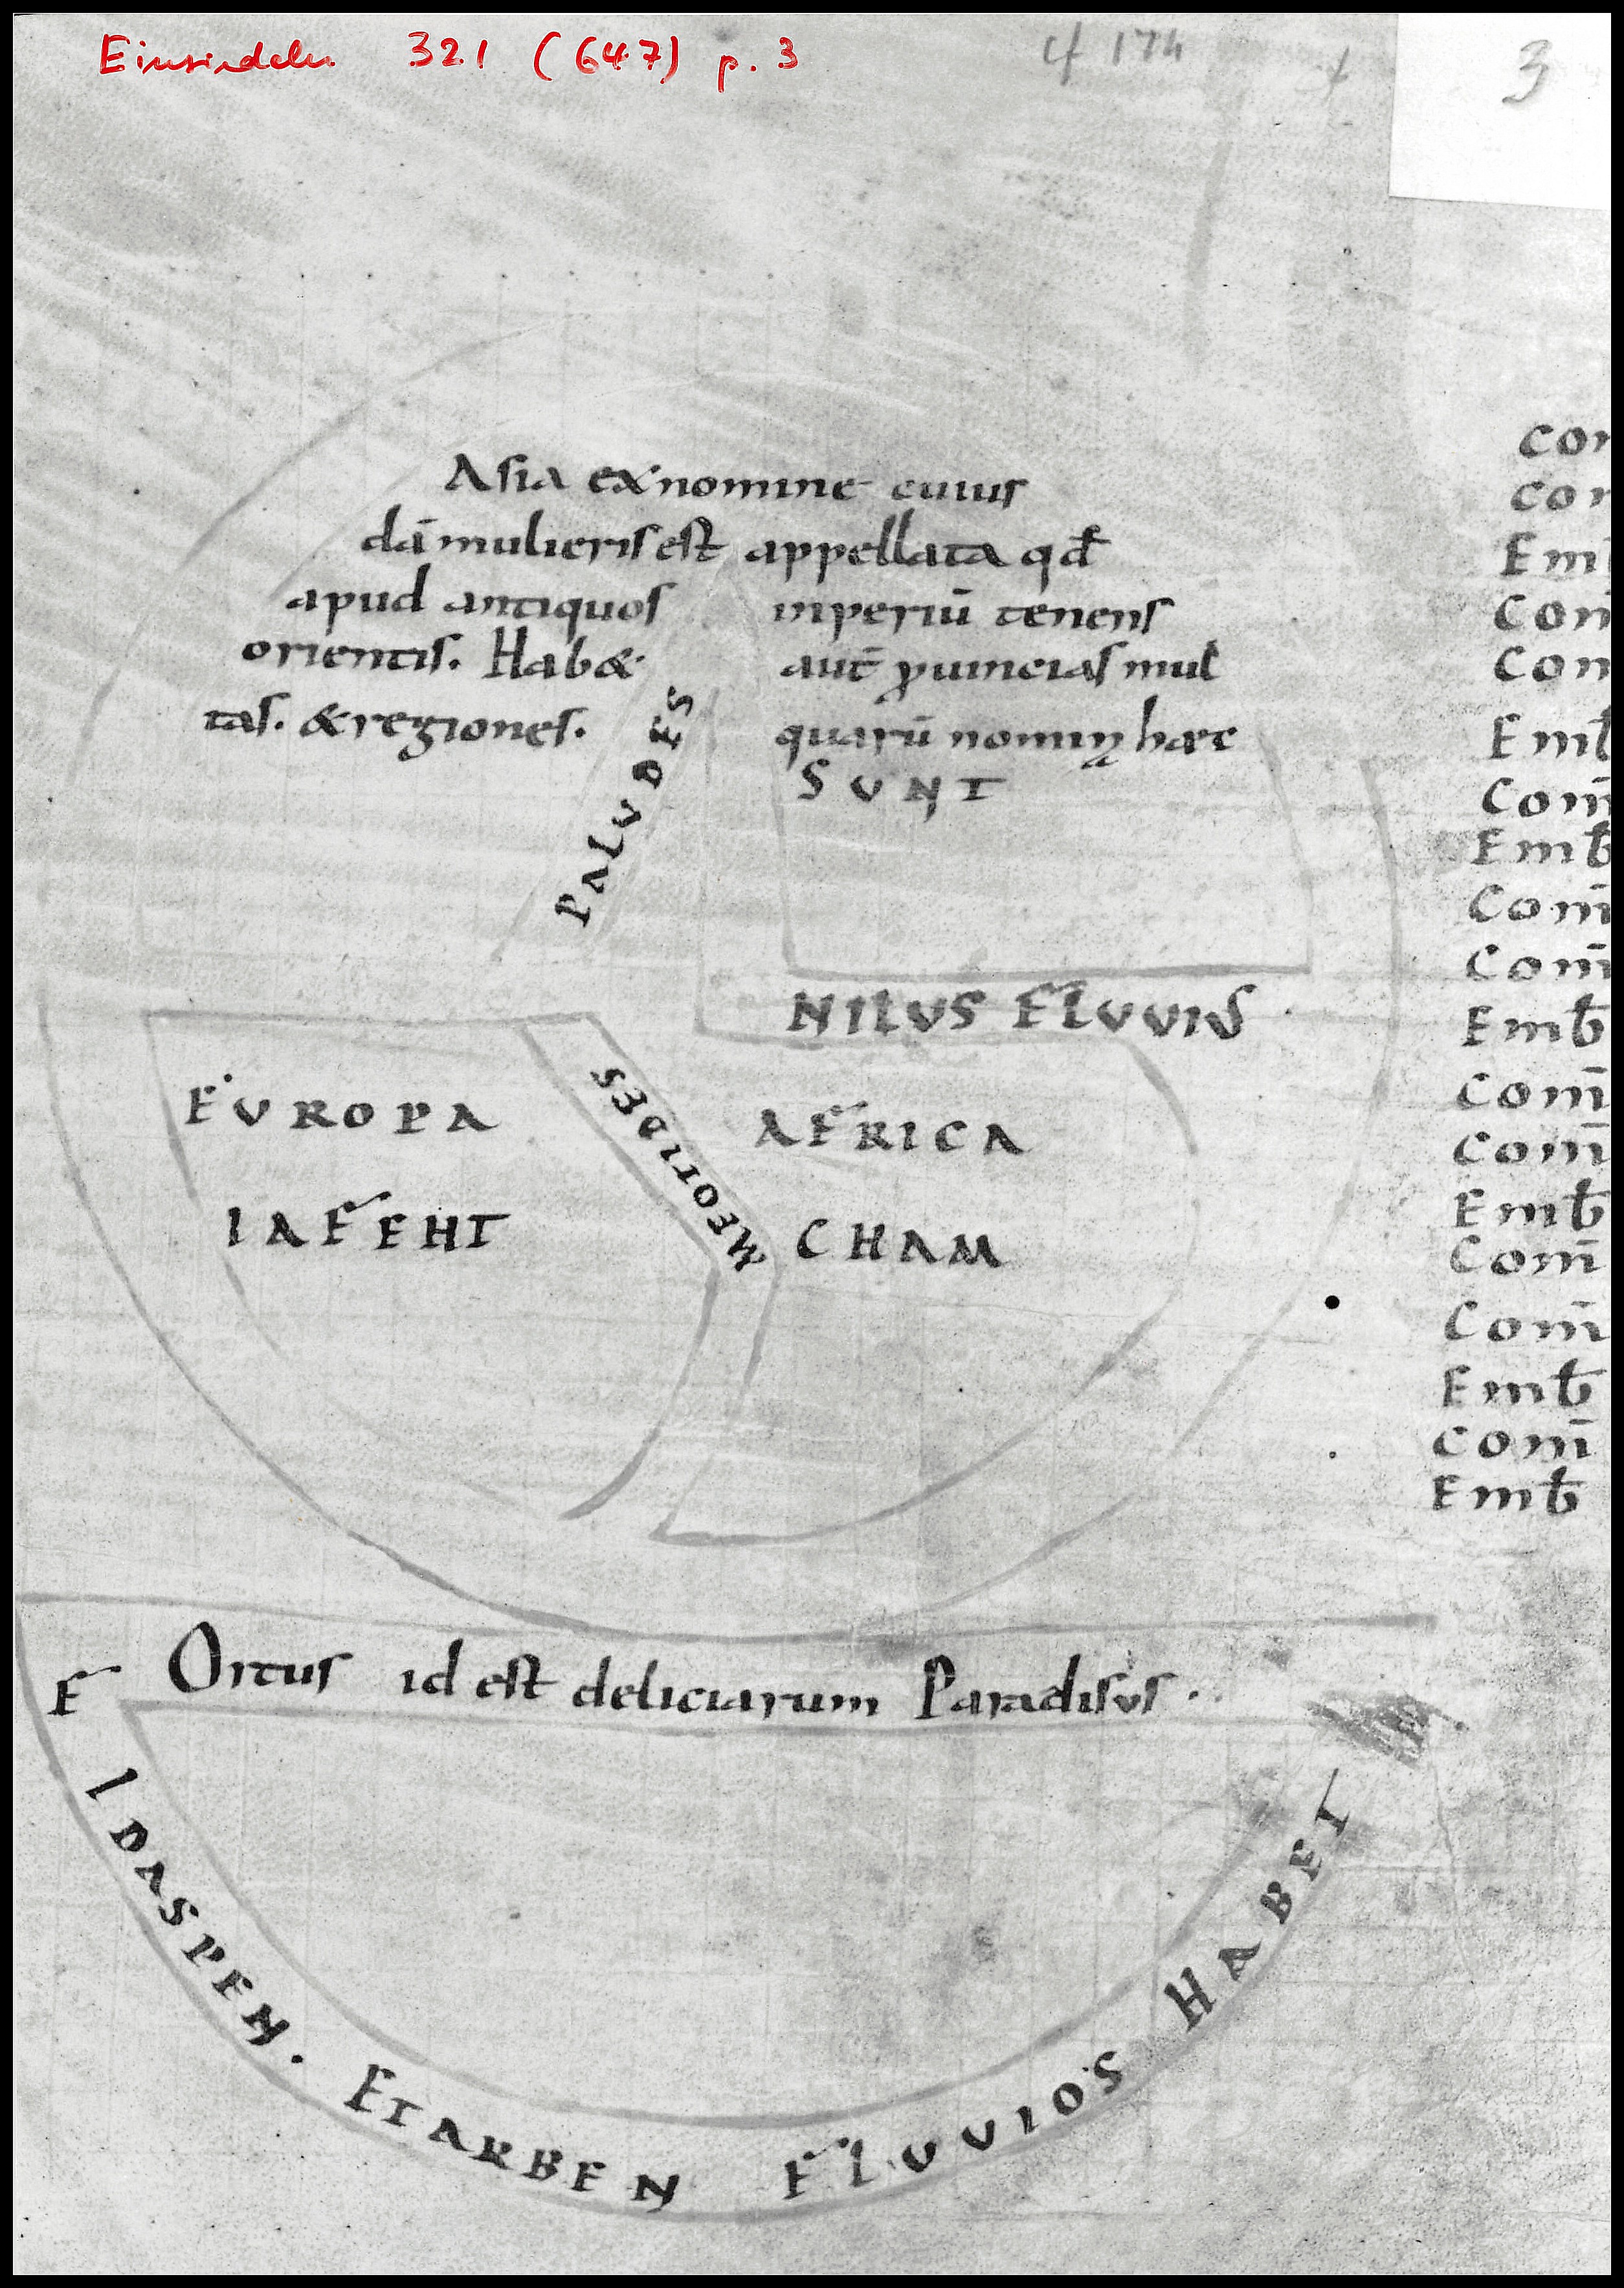 Einsiedeln 321 (647) p. 3
cf 174
3
Asia ex nomine cuius
dā mulieris est appellata qđ
apud antiquos inperiū tenens
orientis. Hab& aut̄ ꝓuincias mul
tas. & regiones. quarū nomin̨ haec
SUNT
PALUDES
NILUS FLUUIUS
EUROPA
AFRICA
MEOTIDES
IAFEHT
CHAM
Ortus id est deliciarum Paradisus .
F
IDASPEN. ETARBEN FLUUIOS HABET
Com
Com
Emb
Com̄
Com̄
Emƀ
Com̄
Emƀ
Com̄
Com̄
Emƀ
Com̄
Com̄
Emƀ
Com̄
Com̄
Emƀ
Com̄
Emƀ